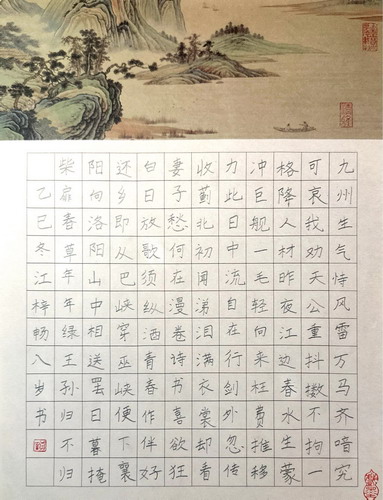 九州生气恃风雷万马齐喑究
可哀我劝天公重抖擞不拘一
格降人材昨夜江边春水生蒙
冲巨舰一毛轻向来枉费推移
力此日中流自在行剑外忽传
收蓟北初闻涕泪满衣裳却看
妻子愁何在漫卷诗书喜欲狂
白日放歌须纵酒青春作伴好
还乡即从巴峡穿巫峡便下襄
阳向洛阳山中相送罢日暮掩
柴扉春草年年绿王孙归不归
乙巳冬江梓畅八岁书